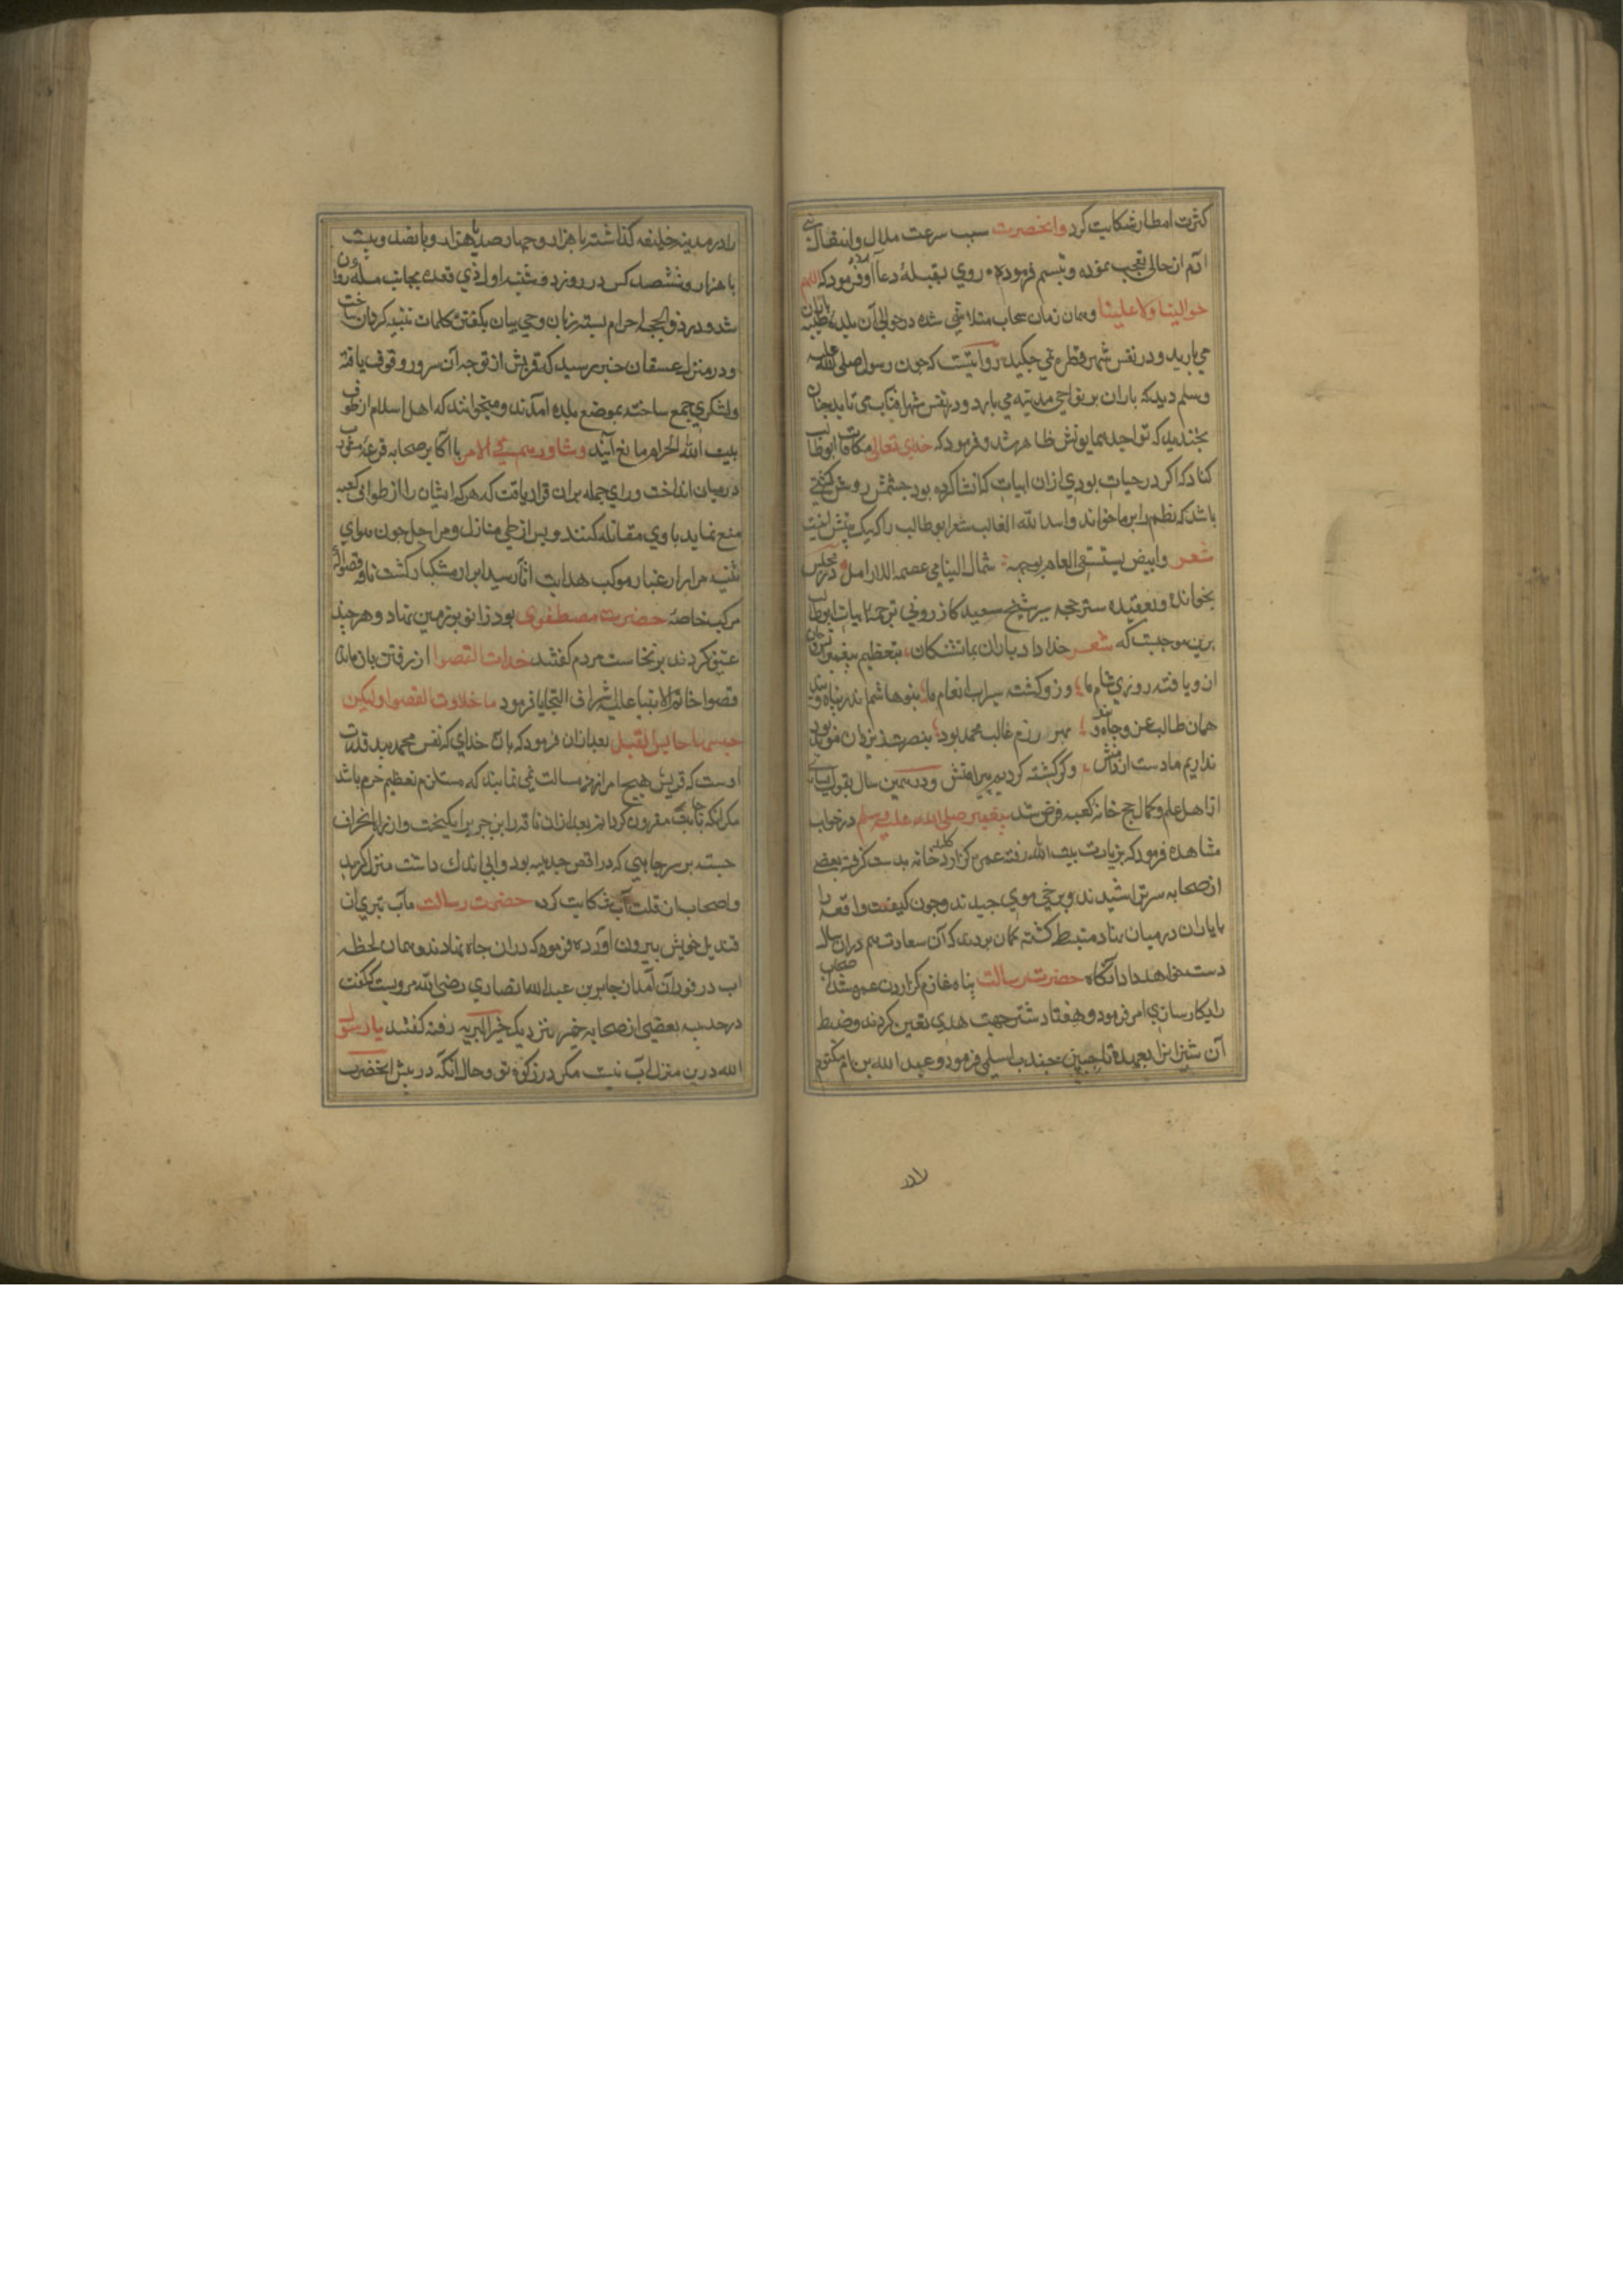 كثرت امطار شكايت كرد وانحضرت سبب سرعت ملال وانتقال بنی
آدم ازان حال تعجب نموده وتبسم فرموده روی بقبلۀ دعا آورد وفرمود كه اللهم
حوالينا ولا علينا وهمان زمان سحاب متلاشی شده در حوالی آن بلدۀ طيبه باران
می باريد ودر نفس شهر قطرۀ نمی چكيد روايتست كه چون رسول صلی الله عليه
وسلم ديد كه باران بر نواحی مدينه می بارد ودر نفس شهر افتاب می تابد چنان
بخنديد كه نواجد همايونش ظاهر شد وفرمود كه خدای تعالی مكافات ابوطالب
كناد كه اكر در حيات بودی ازان ابيات كه انشا كرده بود چشمش روشن كشتی
باشد كه نظم را بر ما خواند واسد الله الغالب شعر ابوطالب را كه يك بيتش اينست
شعر وابيض يستسقی الغمام بوجهه ثمال اليتامی عصمة للارامل در مجلس
بخوانده وبعقيده مترجم سير شيخ سعيد كازرونی ترجمۀ ابيات ابوطالب
برين موجبست كه شعر خدا داد باران بما تشنكان بتعظيم پيغمبر
ازو يافته روزی شام ما وزو كشته سيراب انعام ما بنو هاشم اندر پناه ويند
همان طالب عز وجاه ويند بهر رزم غالب محمد بود بنصرت ز يزدان مؤيد بود
نداريم ما دست از دامنش وكر كشته كرديم پيرامنش ودر همين سال بقول بسياری
از اهل علم وكمال حج خانۀ كعبه فرض شد پيغمبر صلی الله عليه وسلم در خواب
مشاهده فرمود كه بزيارت بيت الله رفته عمره كزارد وكليد خانه بدست كرفته بعضی
از صحابه سر تراشيدند وبرخی موی چيدند وچون كيفيت واقعه را
با ياران درميان نهاد منبسط كشته كمان بردند كه آن سعادت هم دران سال
دست خواهد داد آنكاه حضرت رسالت پناه عازم كزاردن عمره شد اصحاب
را بكارسازی امر فرمود وهفتاد شتر جهت هدی تعيين كردند وضبط
آن شتران را بعهده ناجية بن جندب اسلمی فرمود وعبد الله بن ام مكتوم
را در مدينه خليفه كذاشته با هزار وچهار صد يا هزار وپانصد وبيست
يا هزار وششصد كس در روز دوشنبه اول ذی قعده بجانب مكه روان
شد ودر ذو الحليفه احرام بسته زبان وحی بيان بكفتن كلمات تلبيه كردان ساخت
ودر منزل عسفان خبر رسيد كه قريش از توجه آن سرور وقوف يافته
ولشكری جمع ساخته بموضع بلده آمدند وميخواهند كه اهل اسلام از طواف
بيت الله الحرام مانع آيند وشاورهم فی الامر با اكابر صحابه قرعۀ مشورت
درميان انداخت ورای جمله بران قرار يافت كه هر كه ايشان را از طواف كعبه
منع نمايد با وی مقاتله كنند وپس از طی منازل ومراحل چون هوای
ثنيه مرار از غبار موكب هدايت آثار سيد ابرار مشكبار كشت ناقۀ قصوا كه
مركب خاصۀ حضرت مصطفوی بود زانو بر زمين نهاد وهر چند
عنف كردند برنخاست مردم كفتند خلات القصوا از رفتن باز ماند
قصوا خاتم الانبيا عليه شرايف التحايا فرمود ما خلاوت القصوا ولكن
حبسها حابس الفيل بعد ازان فرمود كه بان خدای كه نفس محمد بيد قدرت
اوست كه قريش هيچ امر از من مسالت نمی نمايند كه مستلزم تعظيم حرم باشد
مكر انكه باجابت مقرون كردانم بعد ازان ناقه را بن جر برانكيخت وازان راه انحراف
جسته بر سر چاهی كه در اقصی حديبيه بود وآبی اندك داشت منزل كزيد
واصحاب از قلت آب شكايت كرده حضرت رسالت مآب تيری از
قنديل خويش بيرون آورده فرمود كه دران چاه نهادند وهمان لحظه
اب در فوران آمد از جابر بن عبد الله انصاری رضی الله عنه مرويست كه كفت
در حديبيه بعضی از صحابه خير بنزديك خير البريه رفته كفتند يا رسول
الله درين منزل آب نيست مكر در ركوۀ تو وحال آنكه در پيش انحضرت